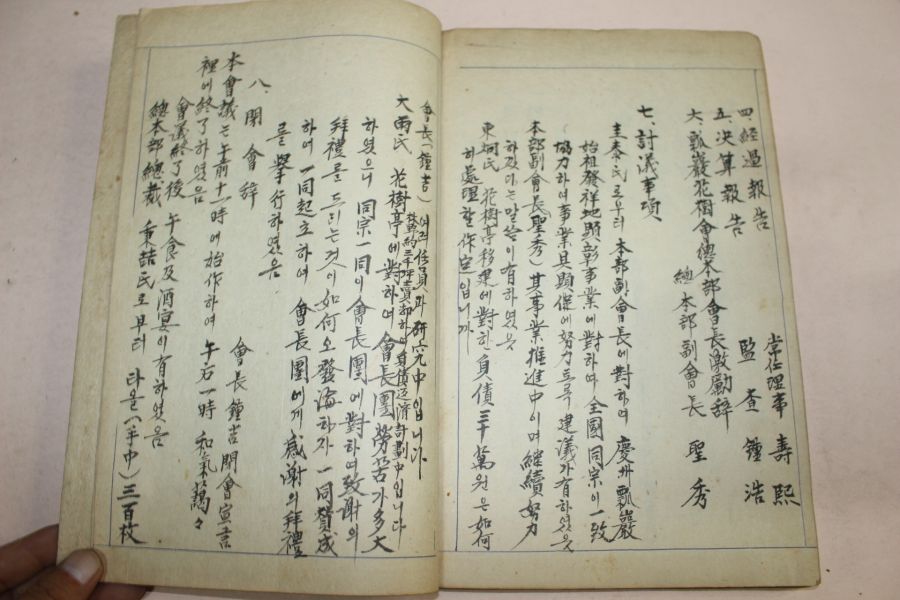 四, 經過報告 常任理事 壽熙
五, 決算報告 監査 鍾浩
六, 瓢巖花樹會總本部會長激勵辞
總本部副會長 聖秀
七, 討議事項
圭泰氏로부터 本部副會長에 對하여 慶州瓢巖
始祖發祥地顯彰事業에 對하여 全國同宗이 一致
協力하여 事業具顯促에 努力토록 建議가 有하였음
本部副會長(聖秀) 其事業推進中이며 継續努力
하겠다는 말씀이 有하였음
東炯氏 花樹亭移建에 對한 負債三千萬원은 如何
히 處理할 作定입니까
會長(鐘吉) 여러 任員과 硏究中입니다
林野約三千坪賣却하여 負債返濟計劃中입니다
大雨氏 花樹亭에 對하여 會長團勞苦가 多大
하였으니 同宗一同이 會長團에 對하여 致謝의
拜禮를 드리는것이 如何오 發論하자 一同贊成
하여 一同起立하여 會長團에게 感謝의 拜禮
를 擧行하였음
八, 閉會辞 會長 鐘吉 閉會宣言
本會議는 午前十一時에 始作하여 午后一時 和氣藹々
裡에 終了하였음
會議終了後 午食及酒宴이 有하였음
總本部總裁 秉喆民로부터 타올(半中) 三百枚